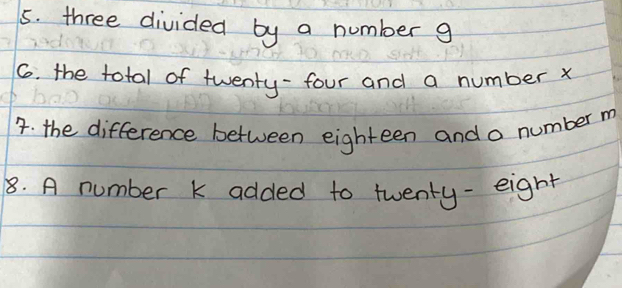 5. three divided by a number g
6. the total of twenty-four and a number x
7. the difference between eighteen and a number m
8. A number k added to twenty-eight